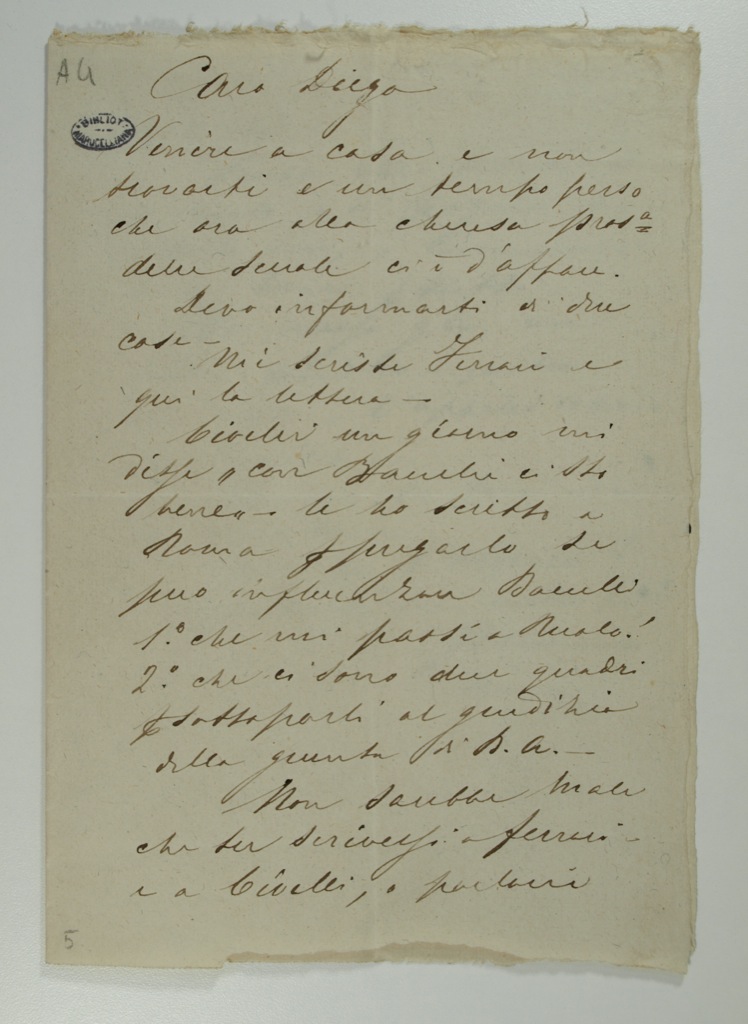 A4
Caro Diego
BIBLIOT. MARUCELLIANA
Venire a casa e non
trovarti e un tempo perso
che ora alla chiusa pros.ª
delle scuole ci è d'affare.
Devo informarti di due
cose –
Mi scrisse Ferrari e
qui la lettera –
Civelli un giorno mi
disse „ con Baccelli ci sto
bene „ – le ho scritto a
Roma pregarlo se
puo influenzare Baccelli
1.º che mi passi a Ruolo!
2.º che ci sono due quadri
sottoporli al giudizio
della giunta di B.A. –
Non sarebbe male
che tu scrivessi a Ferrari –
e a Civelli, o parlarii
5